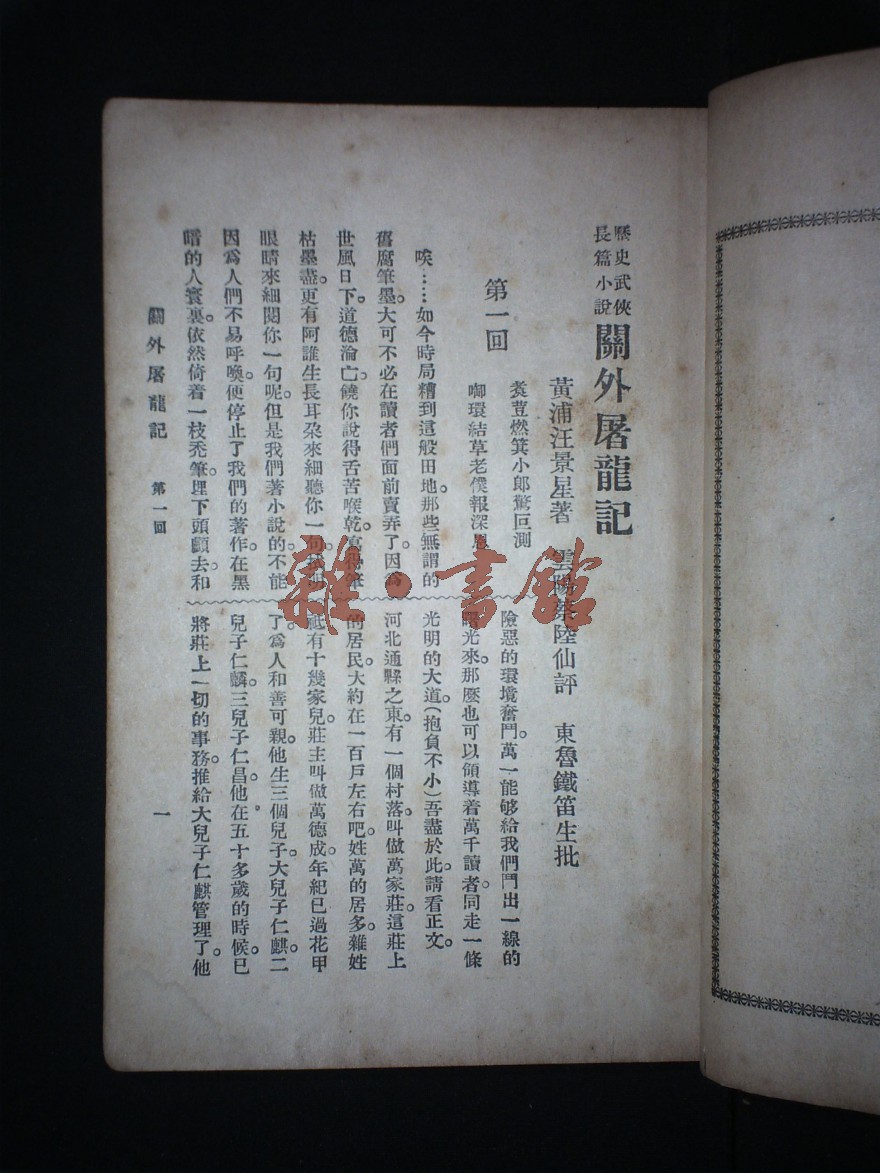 歷史武俠
長篇小說
關外屠龍記
黃浦汪景星著 雲陽蔡陸仙評 東魯鐵笛生批
第一回
煑荳燃箕小郎驚叵測
啣環結草老僕報深恩
唉……如今時局糟到這般田地。那些無謂的
舊腐筆墨。大可不必在讀者們面前賣弄了。因爲
世風日下。道德淪亡。饒你說得舌苦喉乾。寫得筆
枯墨盡。更有阿誰生長耳朶來細聽你一句。拭明
眼睛來細閱你一句呢。但是我們著小說的。不能
因爲人們不易呼喚。便停止了我們的著作。在黑
暗的人寰裏。依然倚着一枝禿筆。埋下頭顱。去和
險惡的環境奮鬥。萬一能够給我們鬥出一線的
曙光來。那麼也可以領導着萬千讀者。同走一條
光明的大道(抱負不小)吾盡於此。請看正文。
河北通縣之東。有一個村落。叫做萬家莊。這莊上
的居民。大約在一百戶左右吧。姓萬的居多。雜姓
祗有十幾家兒。莊主叫做萬德成。年紀已過花甲
了。爲人和善可親。他生三個兒子。大兒子仁麒。二
兒子仁麟。三兒子仁昌。他在五十多歲的時候。已
將莊上一切的事務。推給大兒子仁麒管理了。他
關外屠龍記 第一回 一
雜·書館